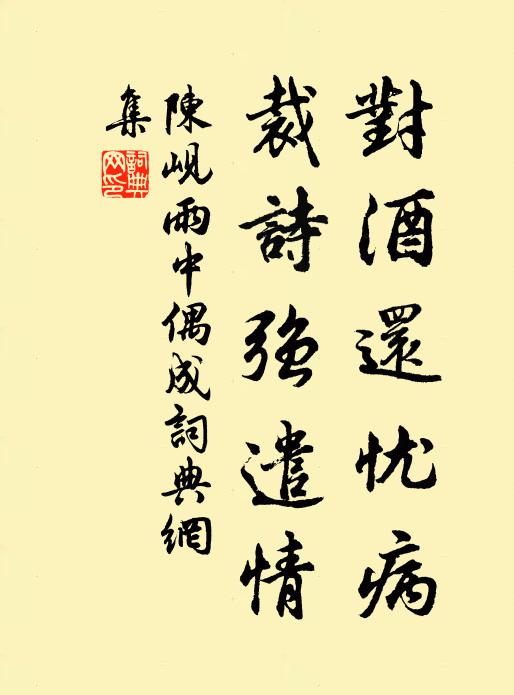 對酒還忧病
裁詩強遣情
陳峴雨中偶成詞典網
集
詞典
網印